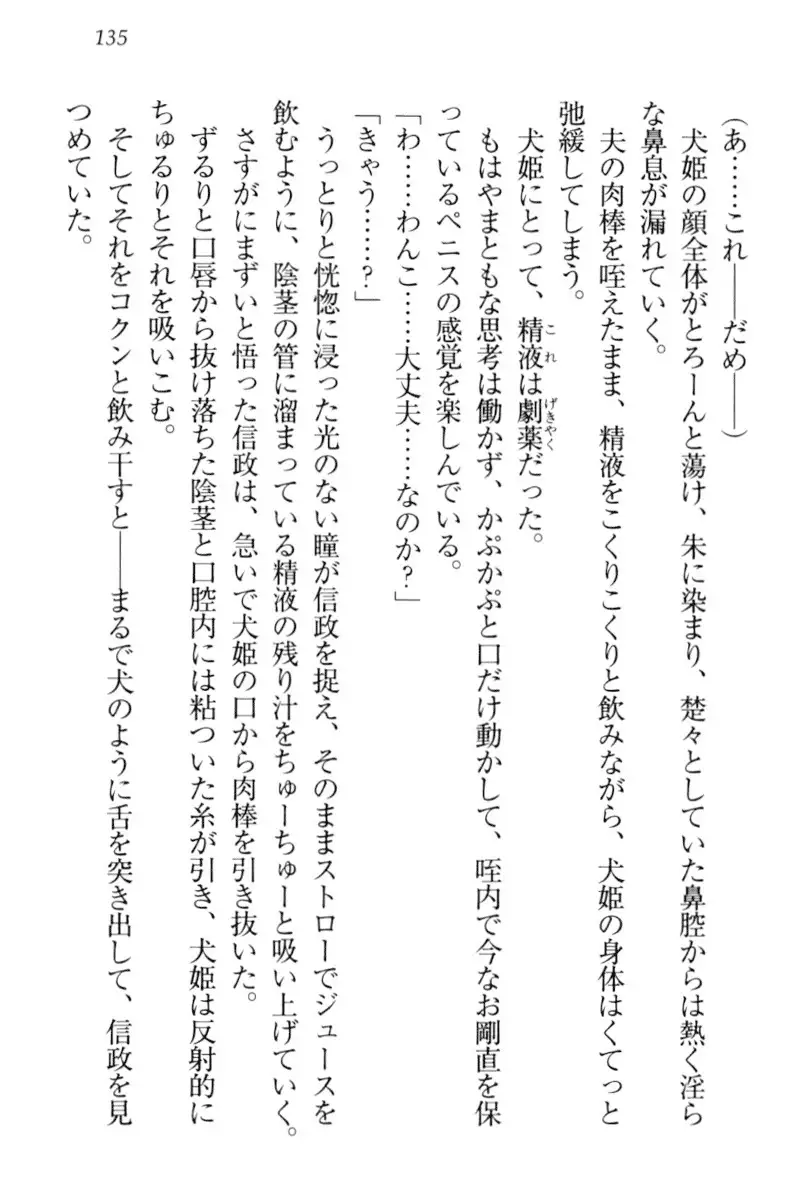 135
(あ……これ――だめ――)
犬姫の顔全体がとろーんと蕩け、朱に染まり、楚々としていた鼻腔からは熱く淫ら
な鼻息が漏れていく。
夫の肉棒を咥えたまま、精液をこくりこくりと飲みながら、犬姫の身体はくてっと
弛緩してしまう。
犬姫にとって、精液(これ)は劇薬(げきやく)だった。
もはやまともな思考は働かず、かぷかぷと口だけ動かして、咥内で今なお剛直を保
っているペニスの感覚を楽しんでいる。
「わ……わんこ……大丈夫……なのか?」
「きゃう……?」
うっとりと恍惚に浸った光のない瞳が信政を捉え、そのままストローでジュースを
飲むように、陰茎の管に溜まっている精液の残り汁をちゅーちゅーと吸い上げていく。
さすがにまずいと悟った信政は、急いで犬姫の口から肉棒を引き抜いた。
ずるりと口唇から抜け落ちた陰茎と口腔内には粘ついた糸が引き、犬姫は反射的に
ちゅるりとそれを吸いこむ。
そしてそれをコクンと飲み干すと――まるで犬のように舌を突き出して、信政を見
つめていた。